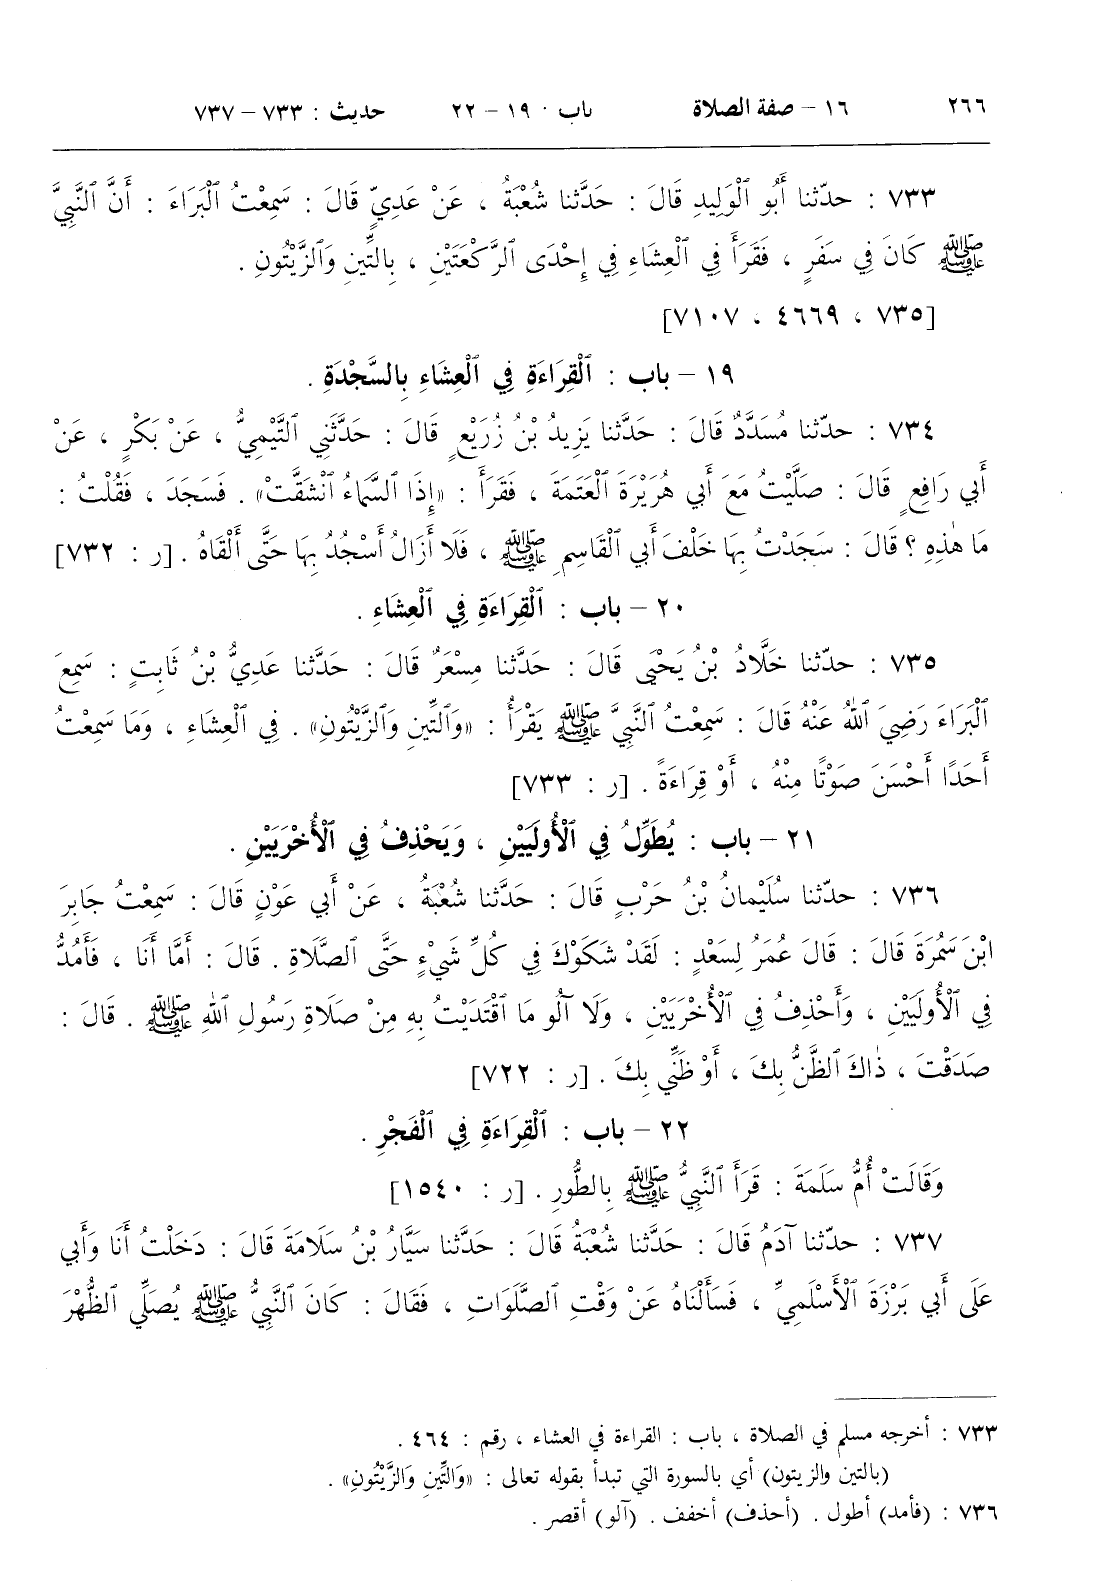 ٢٦٦ ١٦ – صفة الصلاة باب ١٩ – ٢٢ حديث : ٧٣٣ – ٧٣٧
٧٣٣ : حدّثنا أَبُو ٱلْوَلِيدِ قَالَ : حَدَّثَنا شُعْبَةُ ، عَنْ عَدِيٍّ قَالَ : سَمِعْتُ ٱلْبَرَاءَ : أَنَّ ٱلنَّبِيَّ
ﷺ كَانَ فِي سَفَرٍ ، فَقَرَأَ فِي ٱلْعِشَاءِ فِي إِحْدَى ٱلرَّكْعَتَيْنِ ، بِالتِّينِ وَٱلزَّيْتُونِ .
[٧٣٥ ، ٤٦٦٩ ، ٧١٠٧]
١٩ – باب : ٱلْقِرَاءَةِ فِي ٱلْعِشَاءِ بِالسَّجْدَةِ .
٧٣٤ : حدّثنا مُسَدَّدٌ قَالَ : حَدَّثَنا يَزِيدُ بْنُ زُرَيْعٍ قَالَ : حَدَّثَنِي ٱلتَّيْمِيُّ ، عَنْ بَكْرٍ ، عَنْ
أَبِي رَافِعٍ قَالَ : صَلَّيْتُ مَعَ أَبِي هُرَيْرَةَ ٱلْعَتَمَةَ ، فَقَرَأَ : «إِذَا ٱلسَّمَاءُ ٱنْشَقَّتْ» . فَسَجَدَ ، فَقُلْتُ :
مَا هٰذِهِ ؟ قَالَ : سَجَدْتُ بِهَا خَلْفَ أَبِي ٱلْقَاسِمِ ﷺ ، فَلَا أَزَالُ أَسْجُدُ بِهَا حَتَّى أَلْقَاهُ . [ر : ٧٣٢]
٢٠ – باب : ٱلْقِرَاءَةِ فِي ٱلْعِشَاءِ .
٧٣٥ : حدّثنا خَلَّادُ بْنُ يَحْيَى قَالَ : حَدَّثَنا مِسْعَرٌ قَالَ : حَدَّثَنا عَدِيُّ بْنُ ثَابِتٍ : سَمِعَ
ٱلْبَرَاءَ رَضِيَ ٱللهُ عَنْهُ قَالَ : سَمِعْتُ ٱلنَّبِيَّ ﷺ يَقْرَأُ : «وَٱلتِّينِ وَٱلزَّيْتُونِ» . فِي ٱلْعِشَاءِ ، وَمَا سَمِعْتُ
أَحَدًا أَحْسَنَ صَوْتًا مِنْهُ ، أَوْ قِرَاءَةً . [ر : ٧٣٣]
٢١ – باب : يُطَوِّلُ فِي ٱلْأُولَيَيْنِ ، وَيَحْذِفُ فِي ٱلْأُخْرَيَيْنِ .
٧٣٦ : حدّثنا سُلَيْمانُ بْنُ حَرْبٍ قَالَ : حَدَّثَنا شُعْبَةُ ، عَنْ أَبِي عَوْنٍ قَالَ : سَمِعْتُ جَابِرَ
ٱبْنَ سَمُرَةَ قَالَ : قَالَ عُمَرُ لِسَعْدٍ : لَقَدْ شَكَوْكَ فِي كُلِّ شَيْءٍ حَتَّى ٱلصَّلَاةِ . قَالَ : أَمَّا أَنَا ، فَأَمُدُّ
فِي ٱلْأُولَيَيْنِ ، وَأَحْذِفُ فِي ٱلْأُخْرَيَيْنِ ، وَلَا آلُو مَا ٱقْتَدَيْتُ بِهِ مِنْ صَلَاةِ رَسُولِ ٱللهِ ﷺ . قَالَ :
صَدَقْتَ ، ذٰاكَ ٱلظَّنُّ بِكَ ، أَوْ ظَنِّي بِكَ . [ر : ٧٢٢]
٢٢ – باب : ٱلْقِرَاءَةِ فِي ٱلْفَجْرِ .
وَقَالَتْ أُمُّ سَلَمَةَ : قَرَأَ ٱلنَّبِيُّ ﷺ بِالطُّورِ . [ر : ١٥٤٠]
٧٣٧ : حدّثنا آدَمُ قَالَ : حَدَّثَنا شُعْبَةُ قَالَ : حَدَّثَنا سَيَّارُ بْنُ سَلَامَةَ قَالَ : دَخَلْتُ أَنَا وَأَبِي
عَلَى أَبِي بَرْزَةَ ٱلْأَسْلَمِيِّ ، فَسَأَلْنَاهُ عَنْ وَقْتِ ٱلصَّلَوَاتِ ، فَقَالَ : كَانَ ٱلنَّبِيُّ ﷺ يُصَلِّي ٱلظُّهْرَ
٧٣٣ : أخرجه مسلم في الصلاة ، باب : القراءة في العشاء ، رقم : ٤٦٤ .
(بالتين والزيتون) أي بالسورة التي تبدأ بقوله تعالى : «وَالتِّينِ وَالزَّيْتُونِ» .
٧٣٦ : (فأمد) أطول . (أحذف) أخفف . (آلو) أقصر .